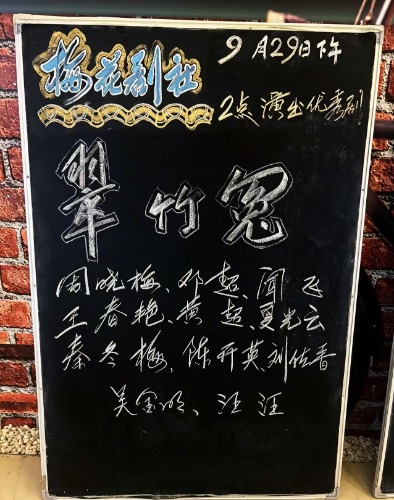 梅花剧社
9月29日下午
2点演出优秀剧
翠竹冤
周晓梅、邓超、闻飞
王春艳、黄超、夏光云
秦冬梅、陈开英刘佐香
吴金明、汪汪